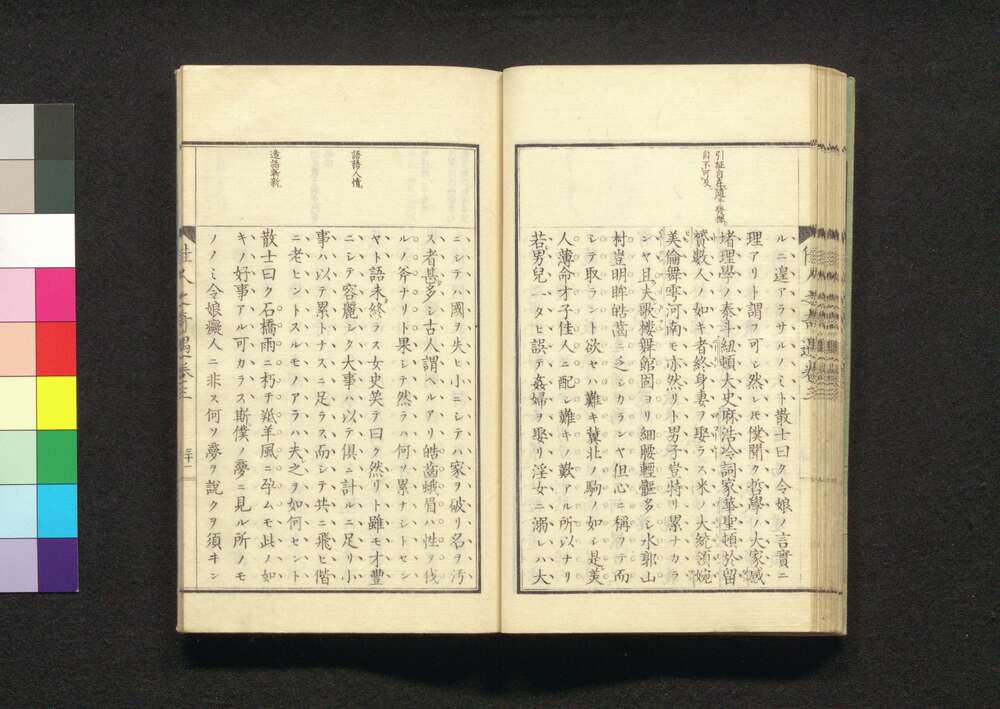 引証自在随手発揮
自不可及
ルニ遑アラサルノミト散士曰ク令娘ノ言實ニ
理アリト謂フ可シ然レ𪜈僕聞ク哲學ノ大家
堵理學ノ泰斗紐頓大史麻浩冷詞家華聖頓於留
賓數人ノ如キ者終身妻ヲ娶ラス米ノ大統領婉
美倫舞雩河南モ亦然リト男子豈特リ累ナカラ
ンヤ且夫歌樓舞館固ヨリ細腰輕軀多シ水郭山
村豈明眸皓齒ニ乏シカランヤ但心ニ稱フテ而
シテ取ラント欲セハ難キ冀北ノ駒ノ如シ是美
人薄命才子佳人ニ配シ難キノ歎アル所以ナリ
若男兒一タヒ誤テ姦婦ヲ娶リ淫女ニ溺レハ大
佳人之奇遇卷三
語語人情
造語新新
ニシテハ國ヲ失ヒ小ニシテハ家ヲ破リ名ヲ汚
ス者甚多シ古人謂ヘルアリ皓齒蛾眉ハ性ヲ伐
ルノ斧ナリト果シテ然ラハ何ソ累ナシトセン
ヤト語未終ラス女史笑テ曰ク然リト雖モ才豐
ニシテ容麗シク大事ハ以テ倶ニ計ルニ足リ小
事ハ以テ累トナスニ足ラス而シテ共ニ飛ヒ偕
ニ老ヒントスルモノアラハ夫之ヲ如何セント
散士曰ク石橋雨ニ朽チ羝羊風ニ孕ムモ此ノ如
キノ好事アル可カラス斯僕ノ夢ニ見ル所ノモ
ノノミ令娘癡人ニ非ス何ソ夢ヲ說クヲ須ヰン
佳人之奇遇卷三